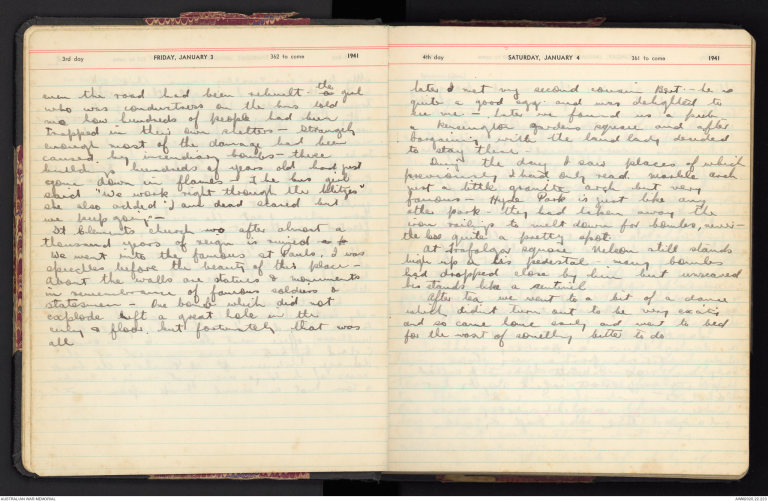 3rd day FRIDAY, JANUARY 3 362 to come 1941
even the road had been rebuilt. the girl
who was conductress on the bus told
me how hundreds of people had been
trapped in their own shelters – Strangely
enough most of the damage had been
caused by incendiary bombs – these
buildings hundreds of years old had just
gone down in flames – The bus girl
said "We work right through the blitzes"
she also added "I am dead scared but
we keep going" –
St Clements church after almost a
thousand years of reign is ruined
We went into the famous St Pauls. I was
speechless before the beauty of this place –
About the walls are statues & monuments
in remembrance of famous soldiers &
statesmen – One bomb which did not
explode left a great hole in the
& floor but fortunately that was
all
4th day SATURDAY, JANUARY 4 361 to come 1941
Later I met my second cousin Bert – he is
quite a good egg and was delighted to
see me – Later we found us a
Kensington Gardens Square and after
bargaining with the landlady decided
to stay there. –
During the day I saw places of which
previously I had only read. Marble Arch
just a little granite arch but very
famous – Hyde Park is just like any
other park – they had taken away the
iron railings to melt down for bombs, never-
the less quite a pretty spot
At Trafalgar Square Nelson still stands
high up on his pedestal many bombs
had dropped close by him but unscared
he stands like a sentinel
After tea we went to a bit of a dance
which didn't turn out to be very exciting
and so came home early and went to bed
for the want of something better to do
AUSTRALIAN WAR MEMORIAL